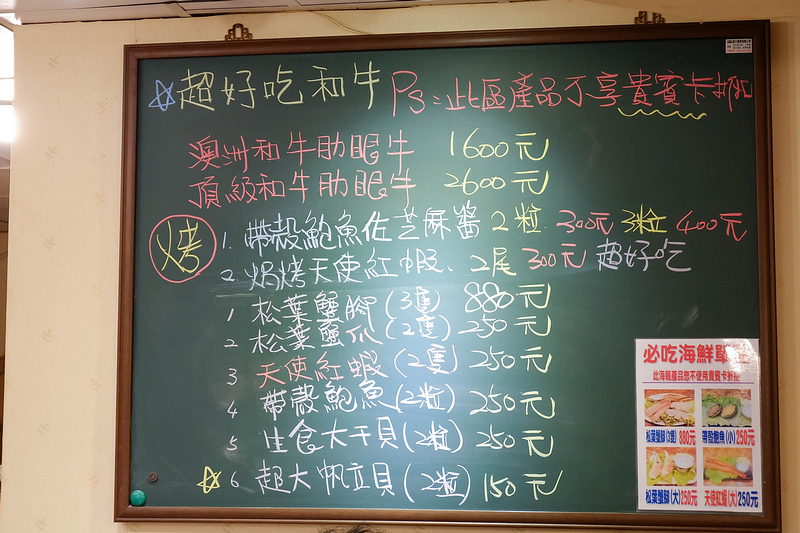 超好吃和牛 Ps:此區產品不享貴賓卡折扣
澳洲和牛肋眼牛 1600元
頂級和牛肋眼牛 2600元
烤
1. 帶殼鮑魚佐芝麻醬 2粒 300元 3粒 400元
2. 焗烤天使紅蝦、2尾 300元 超好吃
1 松葉蟹腳(3隻) 880元
2 松葉蟹爪(2隻) 250元
3 天使紅蝦(2隻) 250元
4 帶殼鮑魚(2粒) 250元
5 生食大干貝(2粒) 250元
6 超大帆立貝(2粒) 150元
必吃海鮮單
此海報產品恕不使用貴賓卡折扣
松葉蟹腳(3隻) 880元
帶殼鮑魚(小) 250元
松葉蟹腳(大) 250元
天使紅蝦(大) 250元